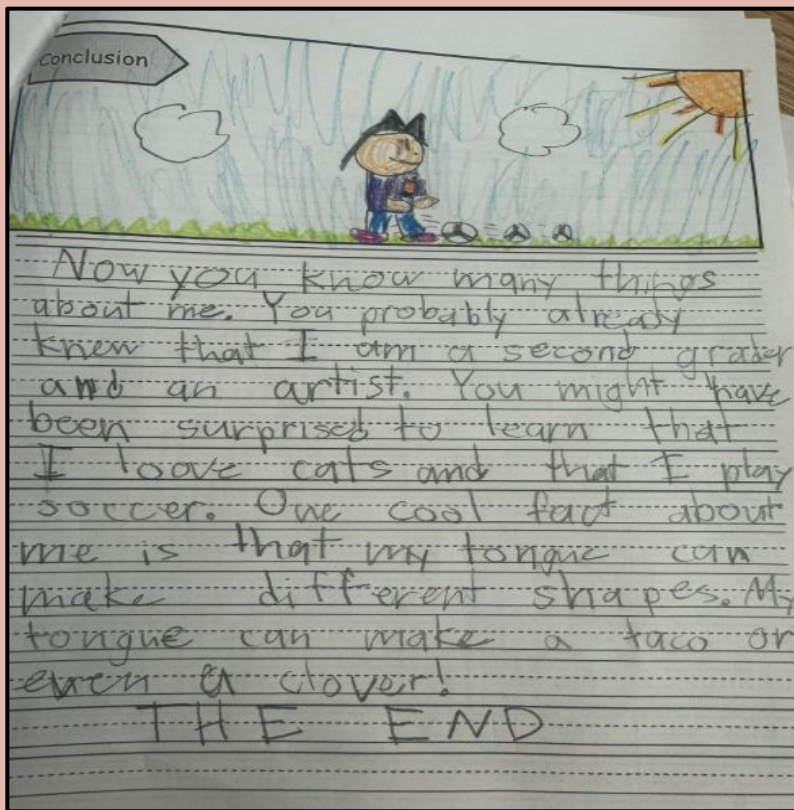 Conclusion
Now you know many things
about me. You probably already
knew that I am a second grader
and an artist. You might have
been surprised to learn that
I loove cats and that I play
soccer. One cool fact about
me is that my tongue can
make different shapes. My
tongue can make a taco or
even a clover!
THE END